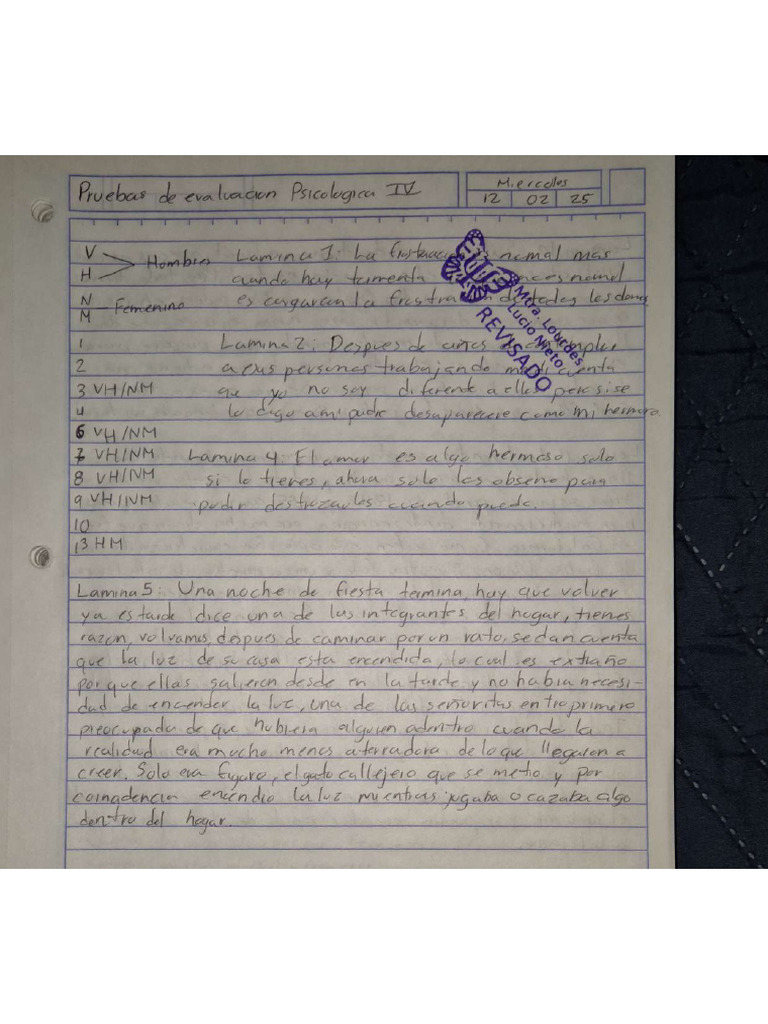 Pruebas de evaluacion Psicologica IV
Miercoles
12 02 25
V
H Hombres
N
M Femenino
Lamina 1: La frustracion es normal mas
cuando hay tormenta
es cargaran la de todos los demas
Lamina 2: Despues de años
a esas personas trabajando me di cuenta
que yo no soy diferente a ellos pero si se
lo digo a mi padre desaparecere como mi hermano.
1
2
3 VH/NM
4
6 VH/NM
7 VH/NM
8 VH/NM
9 VH/NM
10
13 HM
Lamina 4: El amor es algo hermoso solo
si lo tienes, ahora solo los observo para
poder destrozarles cuando pueda.
Mtra. Lourdes
Lucio Nieto
REVISADO
Lamina 5: Una noche de fiesta termina, hay que volver
ya es tarde dice una de las integrantes del hogar, tienes
razon, volvamos, despues de caminar por un rato, se dan cuenta
que la luz de su casa esta encendida, lo cual es extraño
porque ellas salieron desde en la tarde y no habia necesi-
dad de encender la luz, una de las señoritas entro primero
preocupada de que hubiera alguien adentro cuando la
realidad era mucho menos aterradora de lo que llegaron a
creer. Solo era figaro, el gato callejero que se metio y por
coinadencia encendio la luz mientras jugaba o cazaba algo
dentro del hogar.